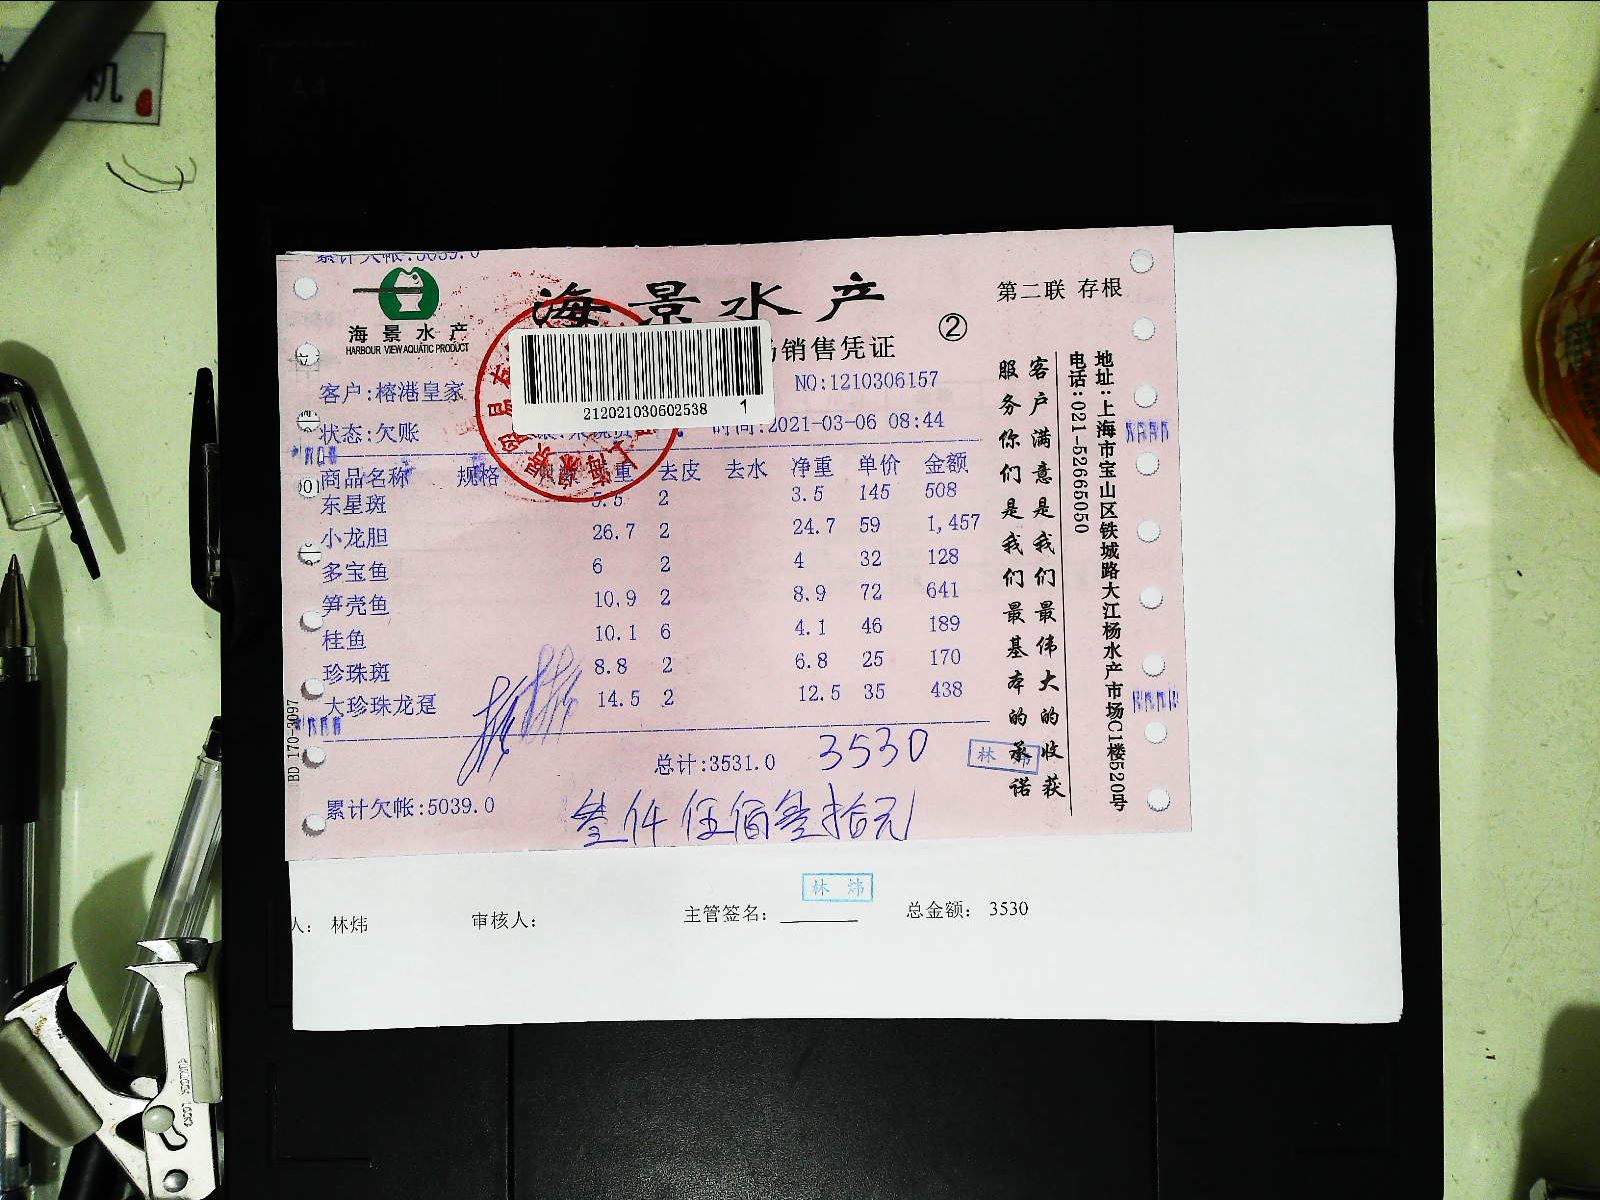 机
累计欠帐:5039.0
海景水产
HARBOUR VIEW AQUATIC PRODUCT
海景水产
销售凭证
②
第二联 存根
212021030602538 1
客户:榕港皇家
NO:1210306157
状态:欠账
时间:2021-03-06 08:44
商品名称 规格 重 去皮 去水 净重 单价 金额
东星斑 5.5 2 3.5 145 508
小龙胆 26.7 2 24.7 59 1,457
多宝鱼 6 2 4 32 128
笋壳鱼 10.9 2 8.9 72 641
桂鱼 10.1 6 4.1 46 189
珍珠斑 8.8 2 6.8 25 170
大珍珠龙趸 14.5 2 12.5 35 438
总计:3531.0 3530
累计欠帐:5039.0
叁仟伍佰叁拾元
客户满意是我们最伟大的收获
服务你们是我们最基本的承诺
地址:上海市宝山区铁城路大江杨水产市场C1楼520号
电话:021-52665050
林炜
BD 170-3097
林炜
人: 林炜 审核人: 主管签名: 总金额: 3530